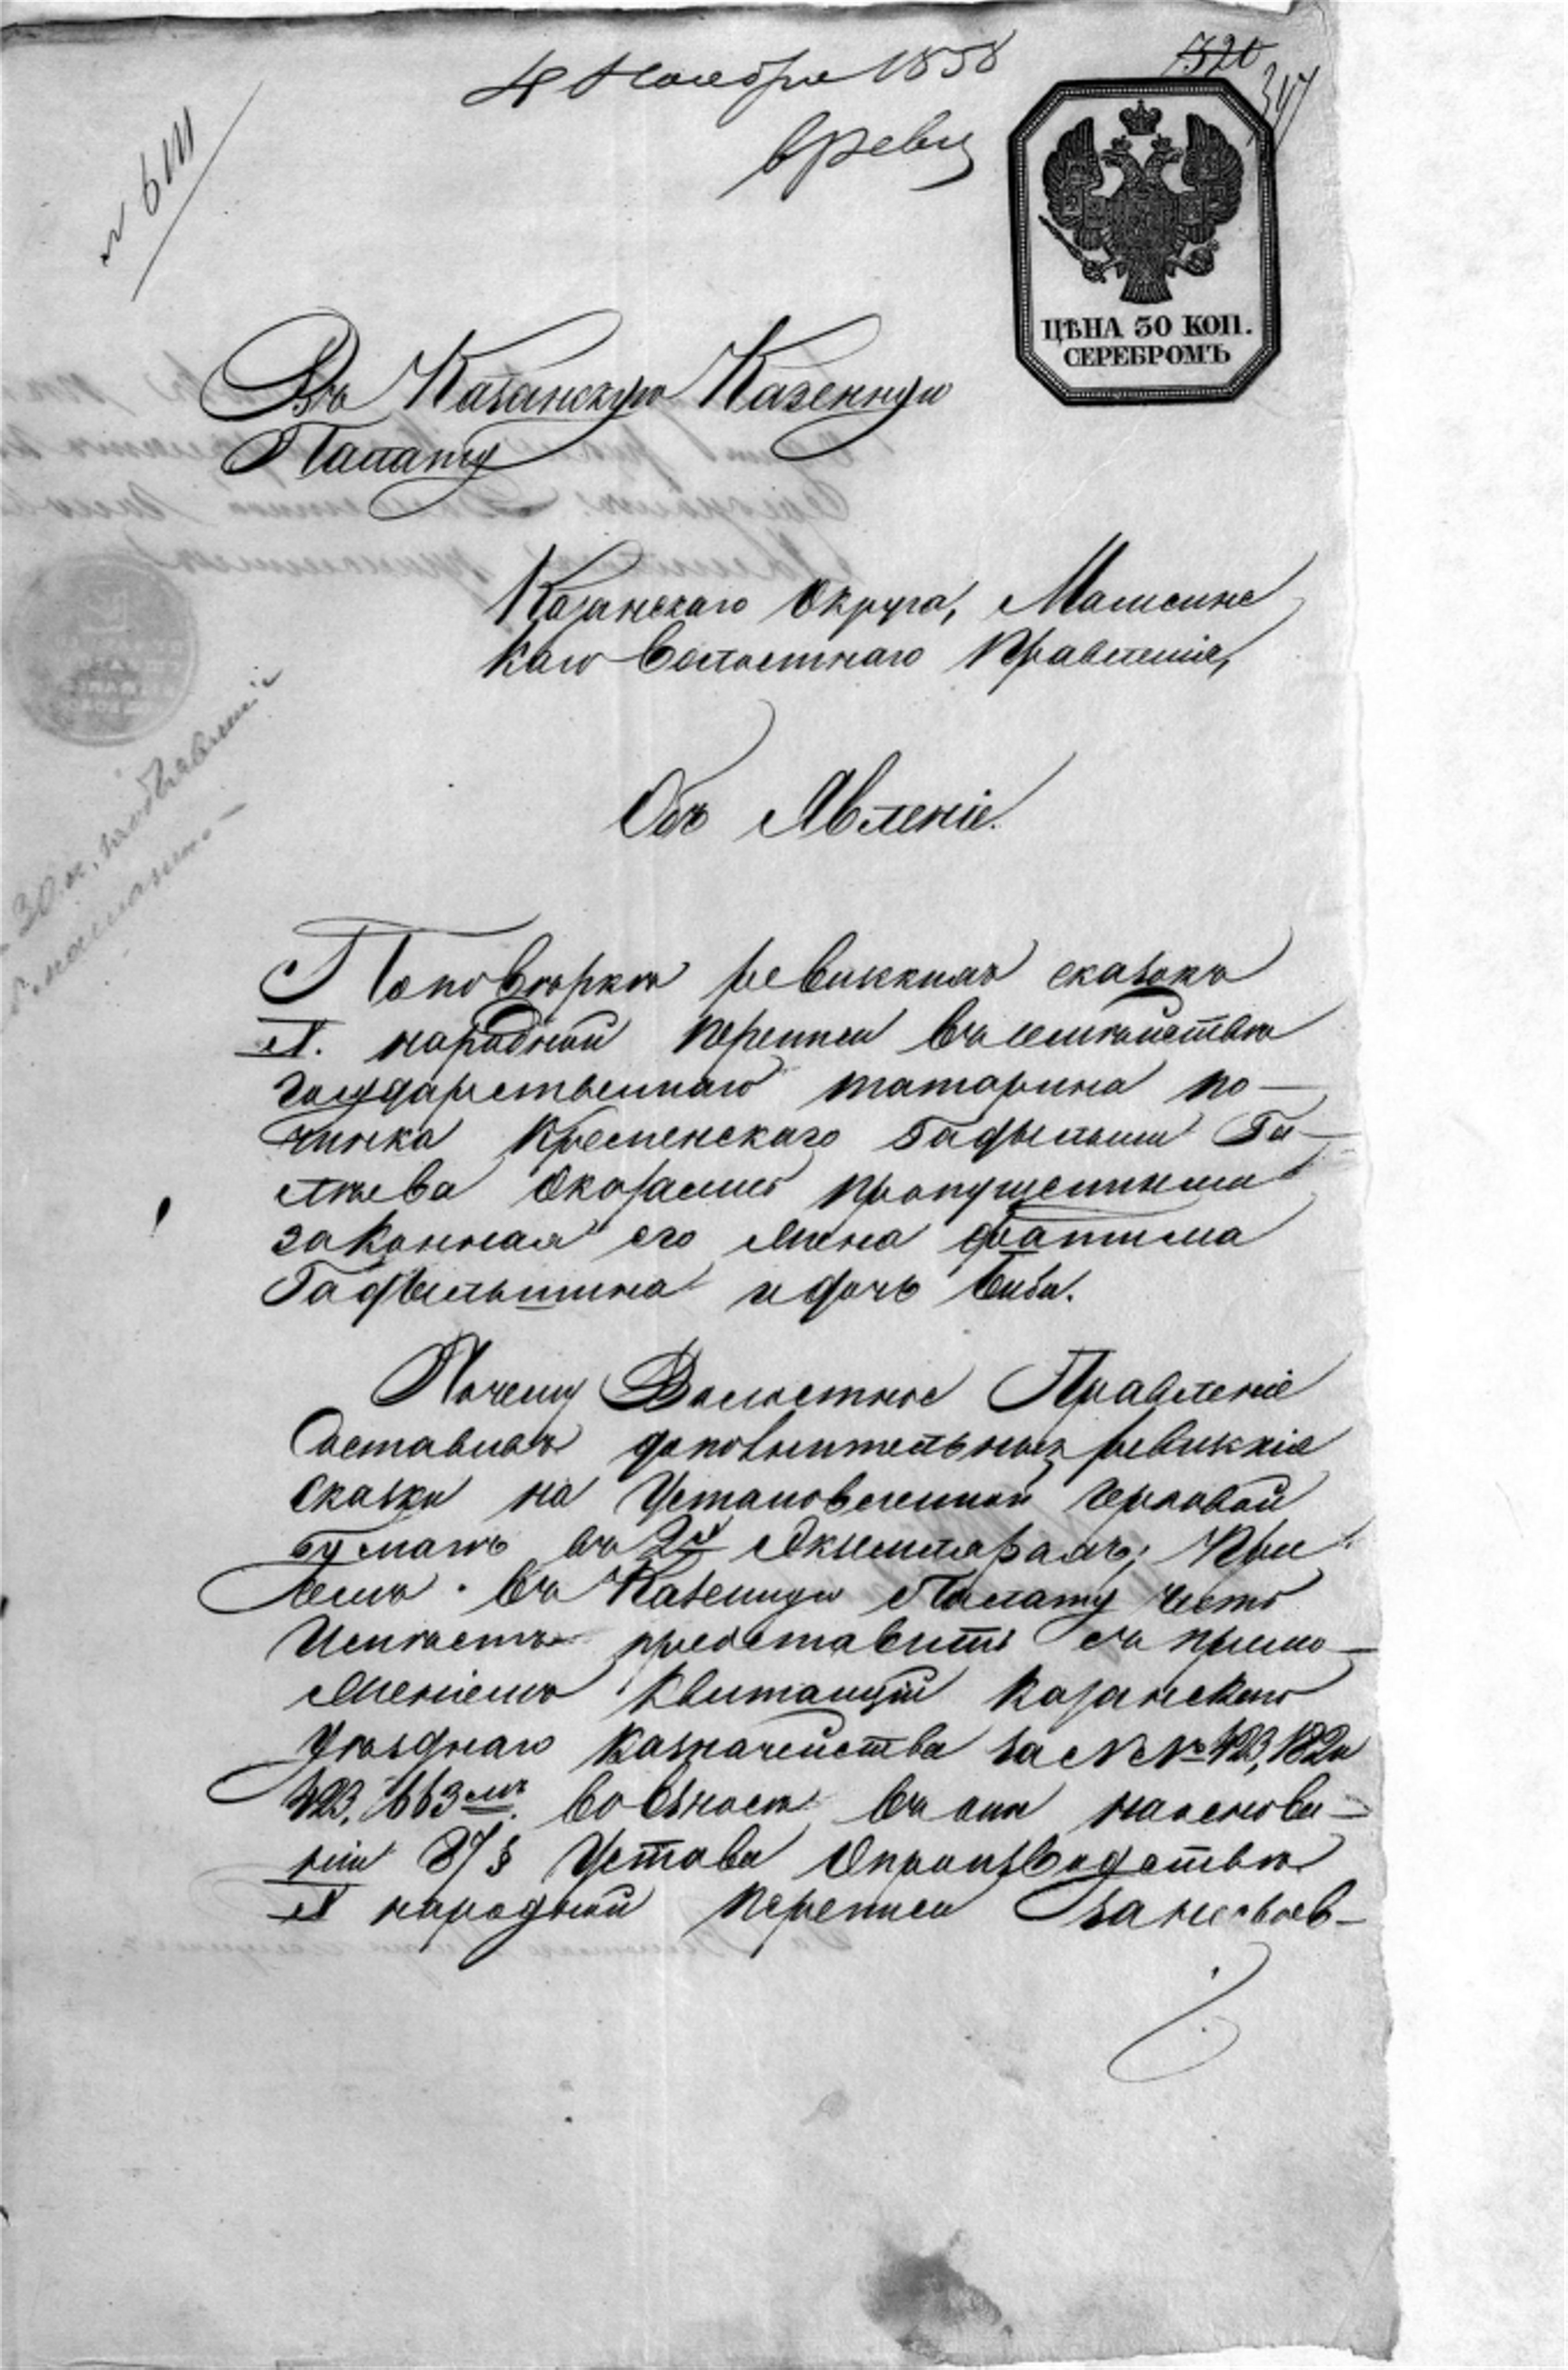 4 Ноября 1858
320
347
в ревиз
№ 6111
ЦѢНА 30 КОП.
СЕРЕБРОМЪ
Въ Казанскую Казенную
Палату
Казанскаго Округа, Машсинс
каго волостнаго Правленія,
Объ Явленіе.
По повѣркѣ ревизкихъ сказокъ
X. народной переписи въ семѣйствѣ
государственнаго татарина по-
чинка Кременскаго Гафѣльши Га-
лѣева Оказались пропущенными
законная его жена фатима
Гафѣльшина и дочь Биби.
Почему Волостное Правленіе
Составивъ дополнительныя ревизкія
сказки на Установленной гербовой
бумагѣ въ 2х Экземплярахъ; При
семъ въ Казенную Палату честь
Имѣетъ представить съ прило-
женіемъ Квитанціи Казанскаго
Уѣзднаго Казначейства за №№ 423, 182 и
423, 663мъ. во взносѣ въ оли на основа-
ніи 87 § Устава О производствѣ
X народной переписи за несвоев-
30 к. на объявленіе